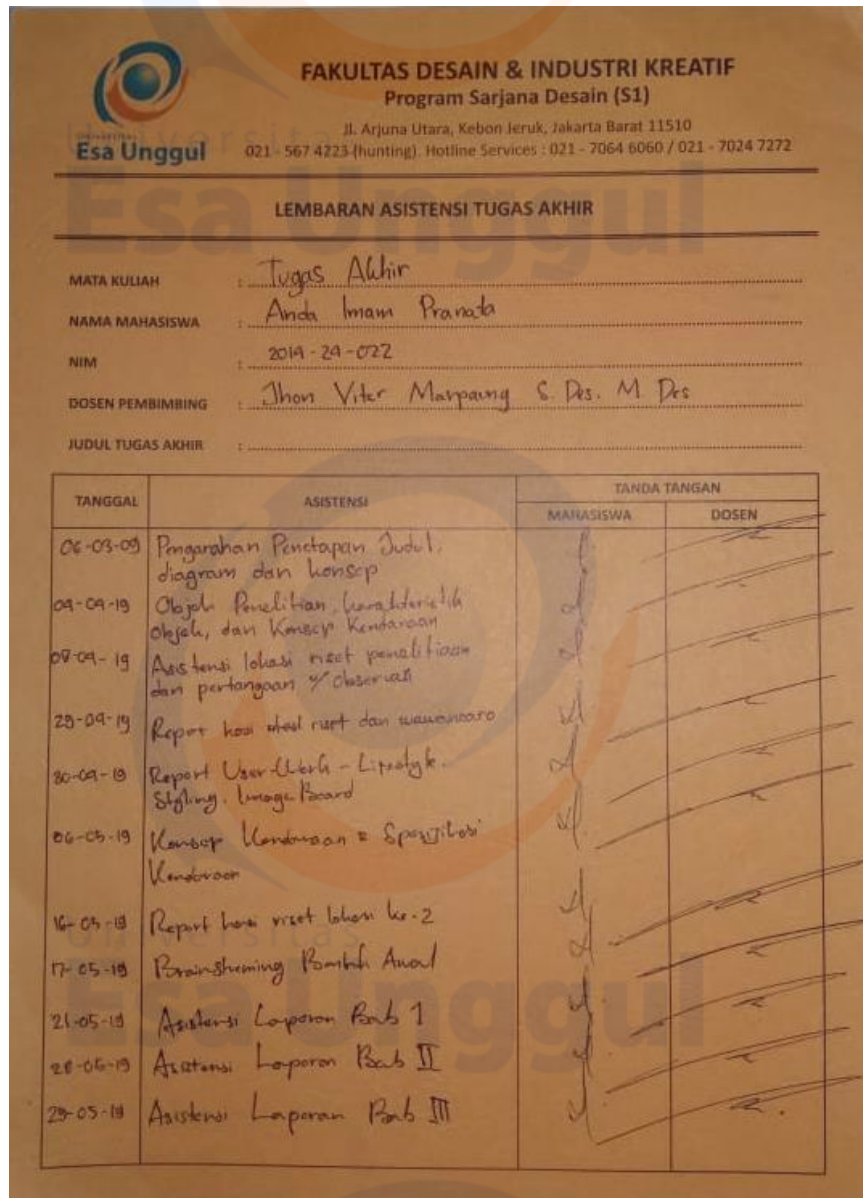 FAKULTAS DESAIN & INDUSTRI KREATIF
Program Sarjana Desain (S1)
Jl. Arjuna Utara, Kebon Jeruk, Jakarta Barat 11510
021 - 567 4223 (hunting). Hotline Services : 021 - 7064 6060 / 021 - 7024 7272
UNIVERSITAS
Esa Unggul
LEMBARAN ASISTENSI TUGAS AKHIR
MATA KULIAH : Tugas Akhir
NAMA MAHASISWA : Anda Imam Pranata
NIM : 2014 - 24 - 022
DOSEN PEMBIMBING : Jhon Viter Marpaung S. Des. M Des
JUDUL TUGAS AKHIR :
TANGGAL ASISTENSI TANDA TANGAN
MAHASISWA DOSEN
06-03-09 Pengarahan Penetapan Judul,
diagram dan konsep
04-04-19 Objek Penelitian, karakteristik
objek, dan Konsep Kendaraan
08-04-19 Asistensi lokasi riset penelitiaan
dan pertangaan observasi
29-04-19 Report riset dan wawancara
30-04-19 Report User - Lifestyle.
Styling. Image Board
06-05-19 Konsep Kendaraan
Kendaraan
16-05-19 Report riset lokasi ke-2
17-05-19 Awal
21-05-19 Asistensi Laporan Bab 1
28-05-19 Asistensi Laporan Bab II
29-05-19 Asistensi Laporan Bab III
Universitas
Esa Unggul
Universitas
Esa Unggul